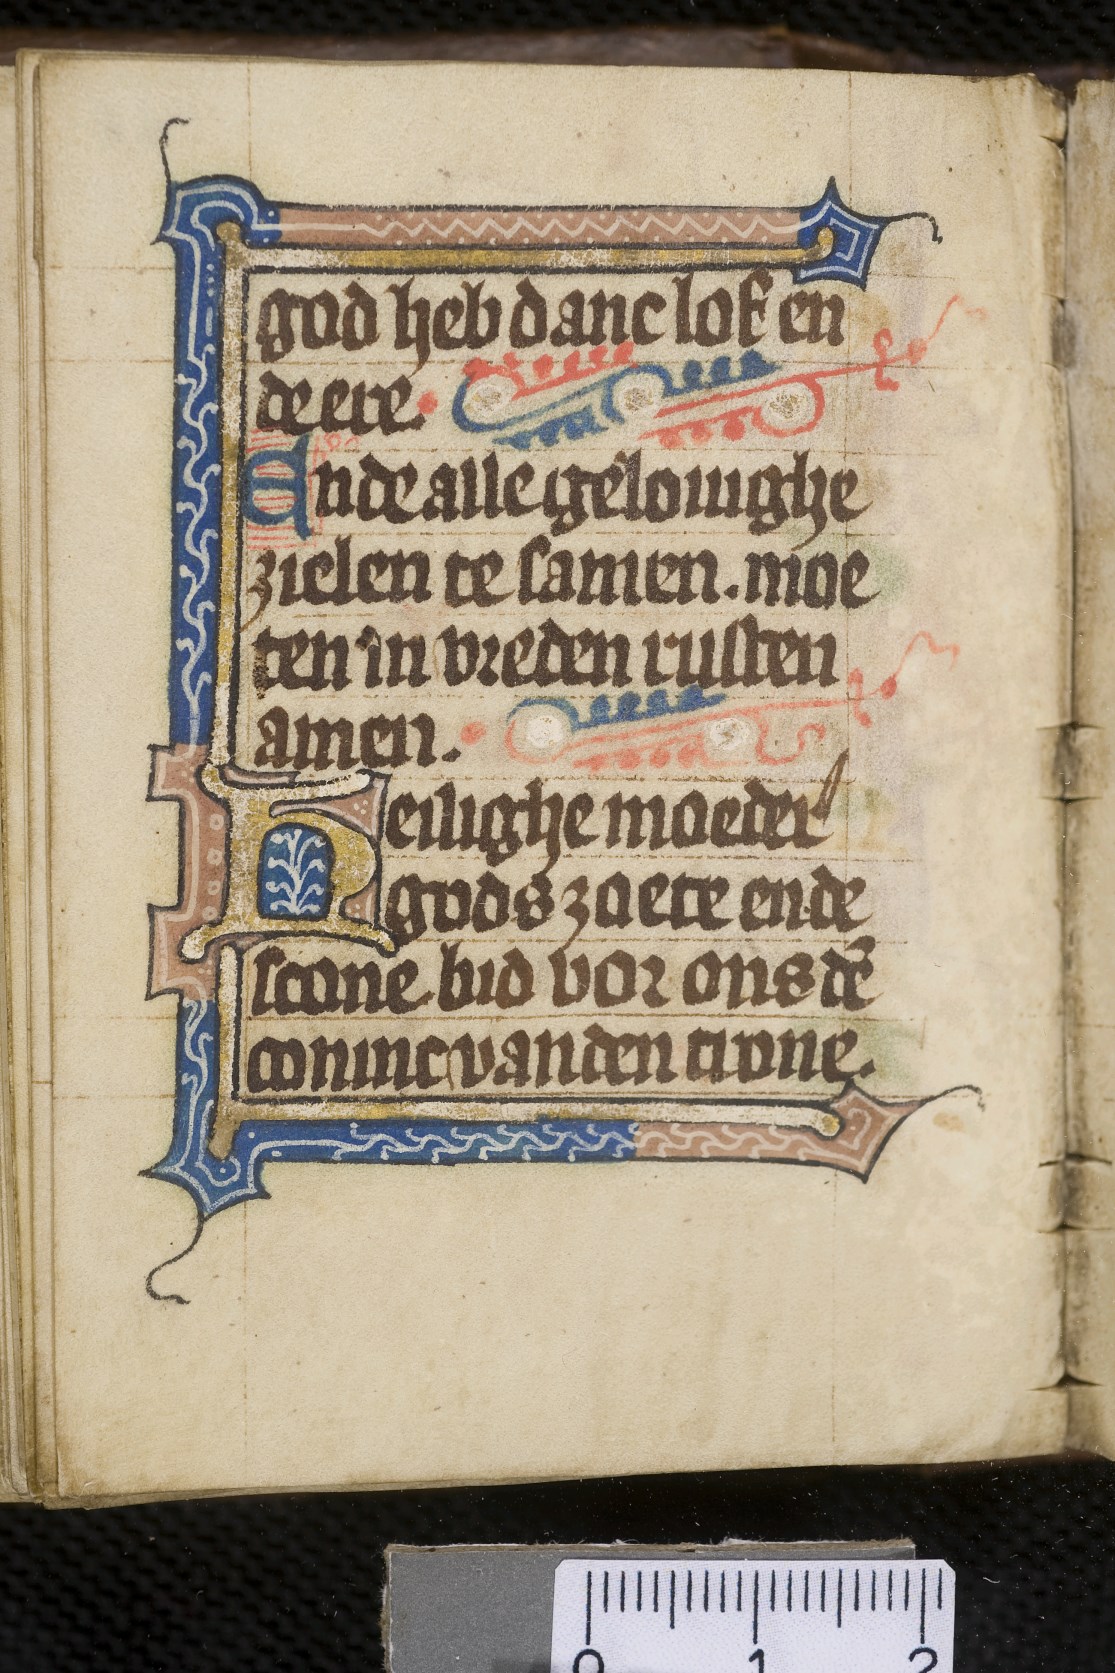 god heb danc lof en
de ere.
Ende alle gelouighe
zielen te samen. moe
ten in vreden rusten
amen.
Heilighe moeder
gods zoete ende
scone. bid vor ons dē
coninc vanden trone.
0 1 2